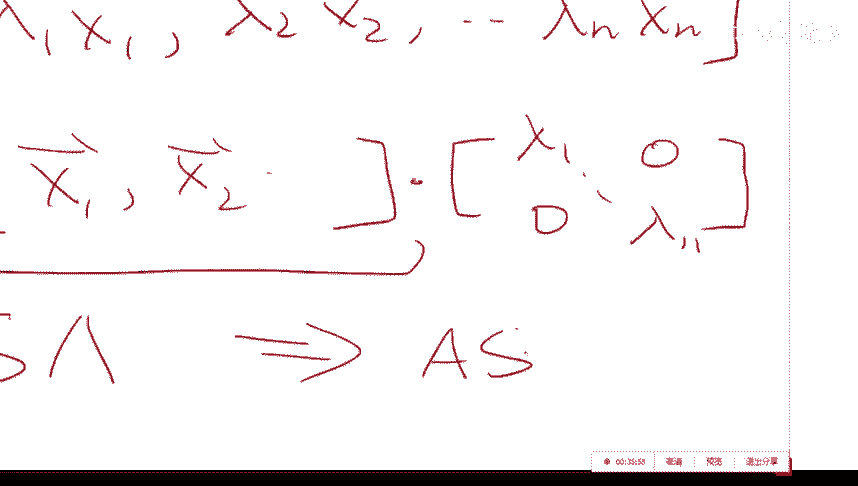 λ₁ x₁, λ₂ x₂, -- λn xn]
x₁, x₂ · ] · [ λ₁ ⋱ 0
0 λn ]
S Λ ⇒ AS
00:35:58